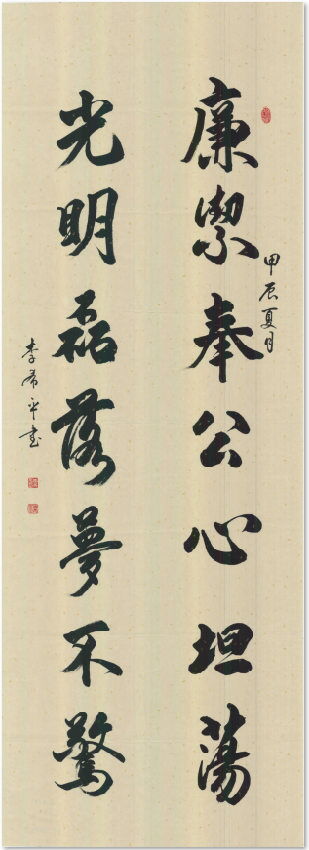 甲辰夏月
廉潔奉公心坦蕩
光明磊落夢不驚
李希平书